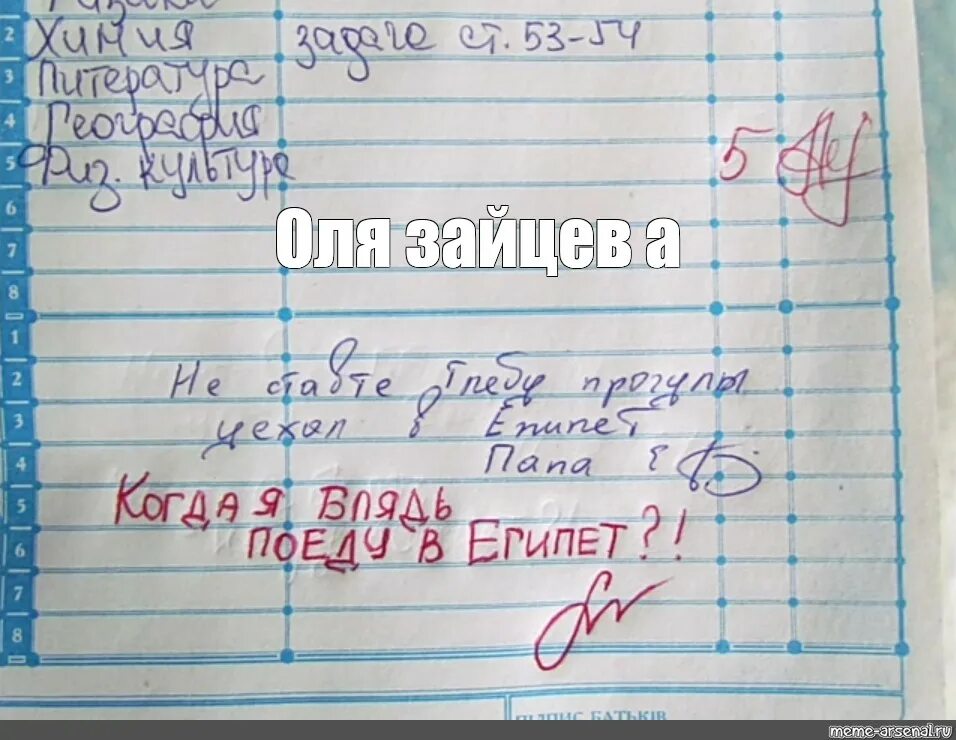 2 Химия задаче ст. 53-54
3 Литература
4 География
5 Физ. культура 5
6
Оля зайцев а
7
8
1
2 Не ставте Глебу прогулы
3 уехал в Египет
4 Папа
5 Когда я блядь
6 поеду в Египет?!
7
8
ПІДПИС БАТЬКІВ
meme-arsenal.ru